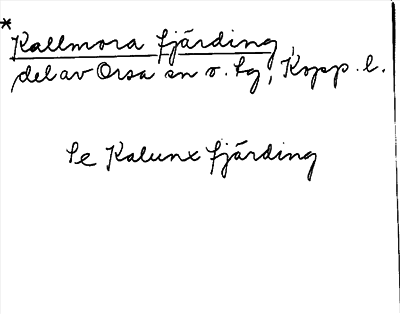 *
Kallmora fjärding,
del av Orsa sn o. lg, Kopp. l.
Se Kalunx fjärding